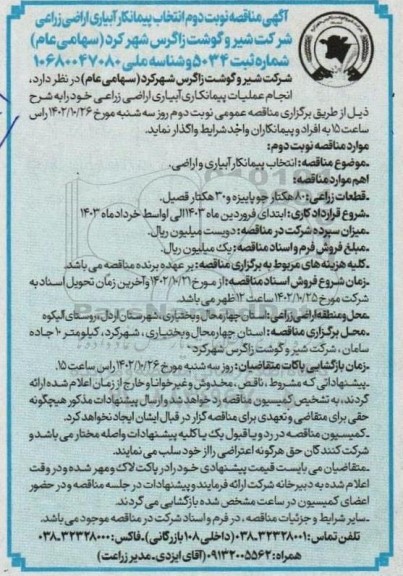 آگهی مناقصه نوبت دوم انتخاب پیمانکار آبیاری اراضی زراعی
شرکت شیر و گوشت زاگرس شهرکرد (سهامی عام)
شماره ثبت ۵۰۳۴ و شناسه ملی ۱۰۶۸۰۰۴۷۰۸۰
شرکت شیر و گوشت زاگرس شهرکرد (سهامی عام) در نظر دارد،
انجام عملیات پیمانکاری آبیاری اراضی زراعی خود را به شرح
ذیل از طریق برگزاری مناقصه عمومی نوبت دوم روز سه شنبه مورخ ۱۴۰۲/۱۰/۲۶ راس
ساعت ۱۵ به افراد و پیمانکاران واجد شرایط واگذار نماید.
موارد مناقصه نوبت دوم:
ـ موضوع مناقصه: انتخاب پیمانکار آبیاری و اراضی.
اهم موارد مناقصه:
ـ قطعات زراعی: ۸۰ هکتار جو پاییزه و ۳۰ هکتار قصیل.
ـ شروع قرارداد کاری: ابتدای فروردین ماه ۱۴۰۳ الی اواسط خرداد ماه ۱۴۰۳
ـ میزان سپرده شرکت در مناقصه: دویست میلیون ریال.
ـ مبلغ فروش فرم و اسناد مناقصه: یک میلیون ریال.
ـ کلیه هزینه های مربوط به برگزاری مناقصه: بر عهده برنده مناقصه می باشد.
ـ زمان شروع فروش اسناد مناقصه: از مورخ ۱۴۰۲/۱۰/۲۱ و آخرین زمان تحویل اسناد به
شرکت مورخ ۱۴۰۲/۱۰/۲۵ ساعت ۱۲ ظهر می باشد.
ـ محل و منطقه اراضی زراعی: استان چهارمحال و بختیاری، شهرستان اردل، روستای آلیکوه
ـ محل برگزاری مناقصه: استان چهارمحال و بختیاری، شهرکرد، کیلومتر ۱۰ جاده
سامان، شرکت شیر و گوشت زاگرس شهرکرد
ـ زمان بازگشایی پاکات متقاضیان: روز سه شنبه مورخ ۱۴۰۲/۱۰/۲۶ راس ساعت ۱۵.
ـ پیشنهاداتی که مشروط، ناقص، مخدوش و غیر خوانا و خارج از زمان اعلام شده ارائه
گردند، به تشخیص کمیسیون مناقصه رد خواهد شد و ارسال پیشنهادات مذکور هیچگونه
حقی برای متقاضی و تعهدی برای مناقصه گزار در قبال ایشان ایجاد نخواهد کرد.
ـ کمیسیون مناقصه در رد و یا قبول یک یا کلیه پیشنهادات واصله مختار می باشد و
شرکت کنندگان حق هرگونه اعتراضی را از خود سلب می نمایند.
ـ متقاضیان می بایست قیمت پیشنهادی خود را در پاکت لاک و مهر شده و در وقت
اعلام شده به دبیرخانه شرکت ارائه فرمایند و پیشنهادات در جلسه مناقصه و در حضور
اعضای کمیسیون در ساعت مشخص شده بازگشایی می گردند.
ـ سایر شرایط و جزئیات مناقصه، در فرم و اسناد شرکت در مناقصه موجود می باشد.
تلفن تماس: ۳۲۳۲۸۰۰۱-۰۳۸ (داخلی ۱۰۸ بازرگانی). فاکس: ۳۲۳۲۸۰۰۰-۰۳۸
همراه: ۰۹۱۳۲۰۰۵۵۶۲ (آقای ایزدی ـ مدیر زراعت)